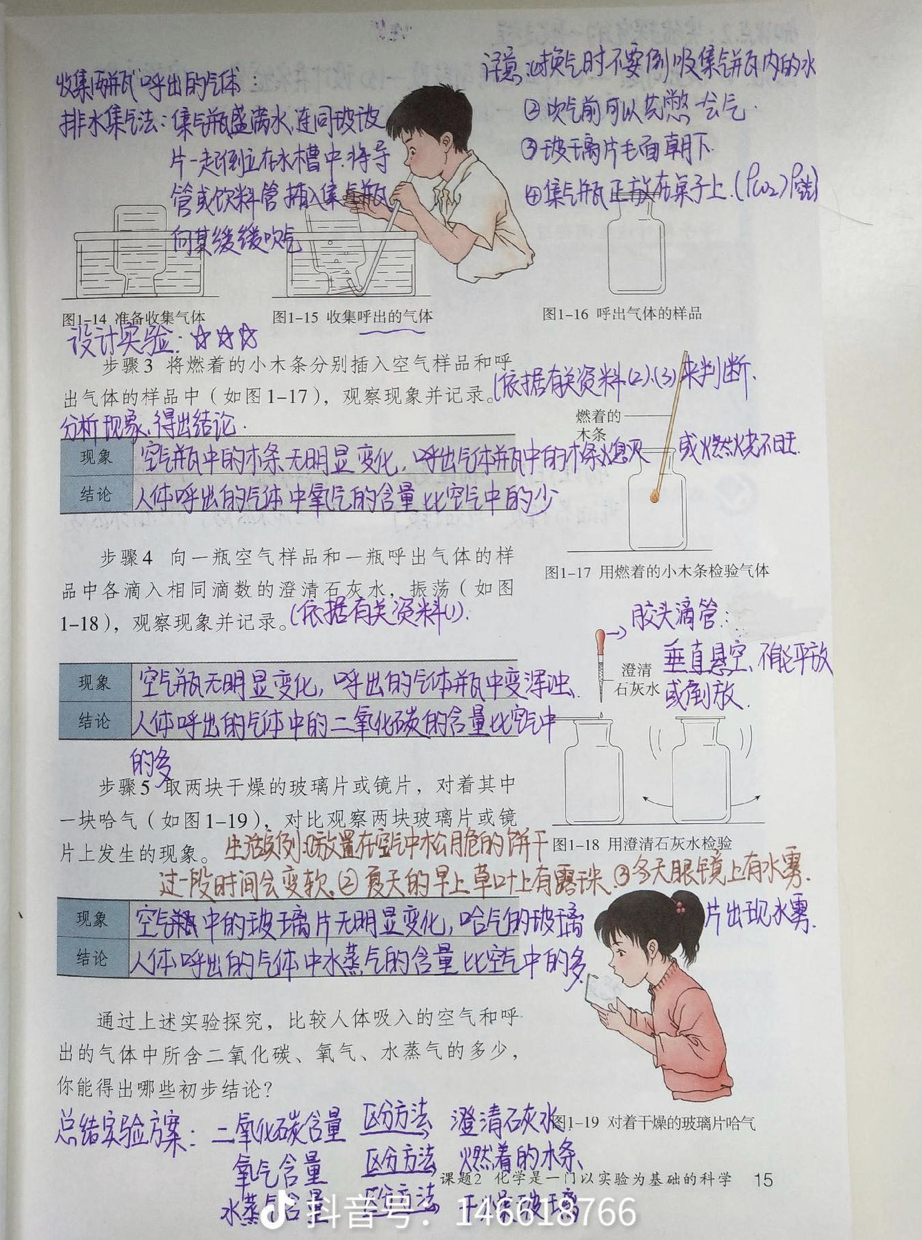 收集两瓶呼出的气体：
排水集气法：集气瓶盛满水，连同玻玻
片一起倒立在水槽中.将导
管或饮料管插入集气瓶
向其缓缓吹气
注意：①换气时不要倒吸集气瓶内的水
②吹气前可以先憋一会气.
③玻璃片毛面朝下.
④集气瓶正放在桌子上.(ρco₂>ρ空)
图1-14 准备收集气体
图1-15 收集呼出的气体
图1-16 呼出气体的样品
设计实验：☆☆☆
步骤3 将燃着的小木条分别插入空气样品和呼
出气体的样品中（如图1-17），观察现象并记录。(依据有关资料(2).(3)来判断.
分析现象、得出结论.
燃着的
木条
现象 空气瓶中的木条无明显变化，呼出气体瓶中的木条熄灭 或燃烧不旺.
结论 人体呼出的气体中氧气的含量比空气中的少
图1-17 用燃着的小木条检验气体
步骤4 向一瓶空气样品和一瓶呼出气体的样
品中各滴入相同滴数的澄清石灰水，振荡（如图
1-18），观察现象并记录。(依据有关资料(1).
胶头滴管：
垂直悬空、不能平放
或倒放.
澄清
石灰水
现象 空气瓶无明显变化，呼出的气体瓶中变浑浊.
结论 人体呼出的气体中的二氧化碳的含量比空气中
的多
图1-18 用澄清石灰水检验
步骤5 取两块干燥的玻璃片或镜片，对着其中
一块哈气（如图1-19），对比观察两块玻璃片或镜
片上发生的现象。生活实例:①放置在空气中松脆的饼干
过一段时间会变软.②夏天的早上草叶上有露珠.③冬天眼镜上有水雾.
现象 空气瓶中的玻璃片无明显变化，哈气的玻璃片出现水雾.
结论 人体呼出的气体中水蒸气的含量比空气中的多.
通过上述实验探究，比较人体吸入的空气和呼
出的气体中所含二氧化碳、氧气、水蒸气的多少，
你能得出哪些初步结论？
图1-19 对着干燥的玻璃片哈气
总结实验方案：二氧化碳含量 区分方法 澄清石灰水
氧气含量 区分方法 燃着的木条
水蒸气含量 区分方法 干燥玻璃
课题2 化学是一门以实验为基础的科学 15
抖音号：146618766